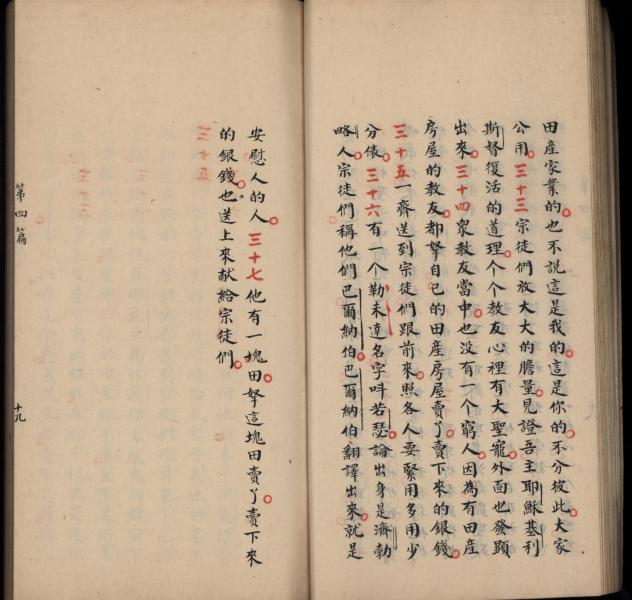 田産家業的也不說這是我的這是你的不分彼此大家
公用三十三宗徒們放大大的膽量見證吾主耶穌基利
斯督復活的道理个个教友心裡有大聖寵外面也發顯
出來三十四衆教友當中也没有一个窮人因為有田産
房屋的教友都拏自己的田産房屋賣了賣下來的銀錢
三十五一齊送到宗徒們跟前來照各人要緊用多用少
分俵三十六有一个勒未達名字呌若瑟論出身是濟勃
略人宗徒們稱他們巴爾納伯巴爾納伯翻譯出來就是
安慰人的人三十七他有一塊田拏這塊田賣了賣下來
的銀錢也送上來献給宗徒們
第四篇
十九